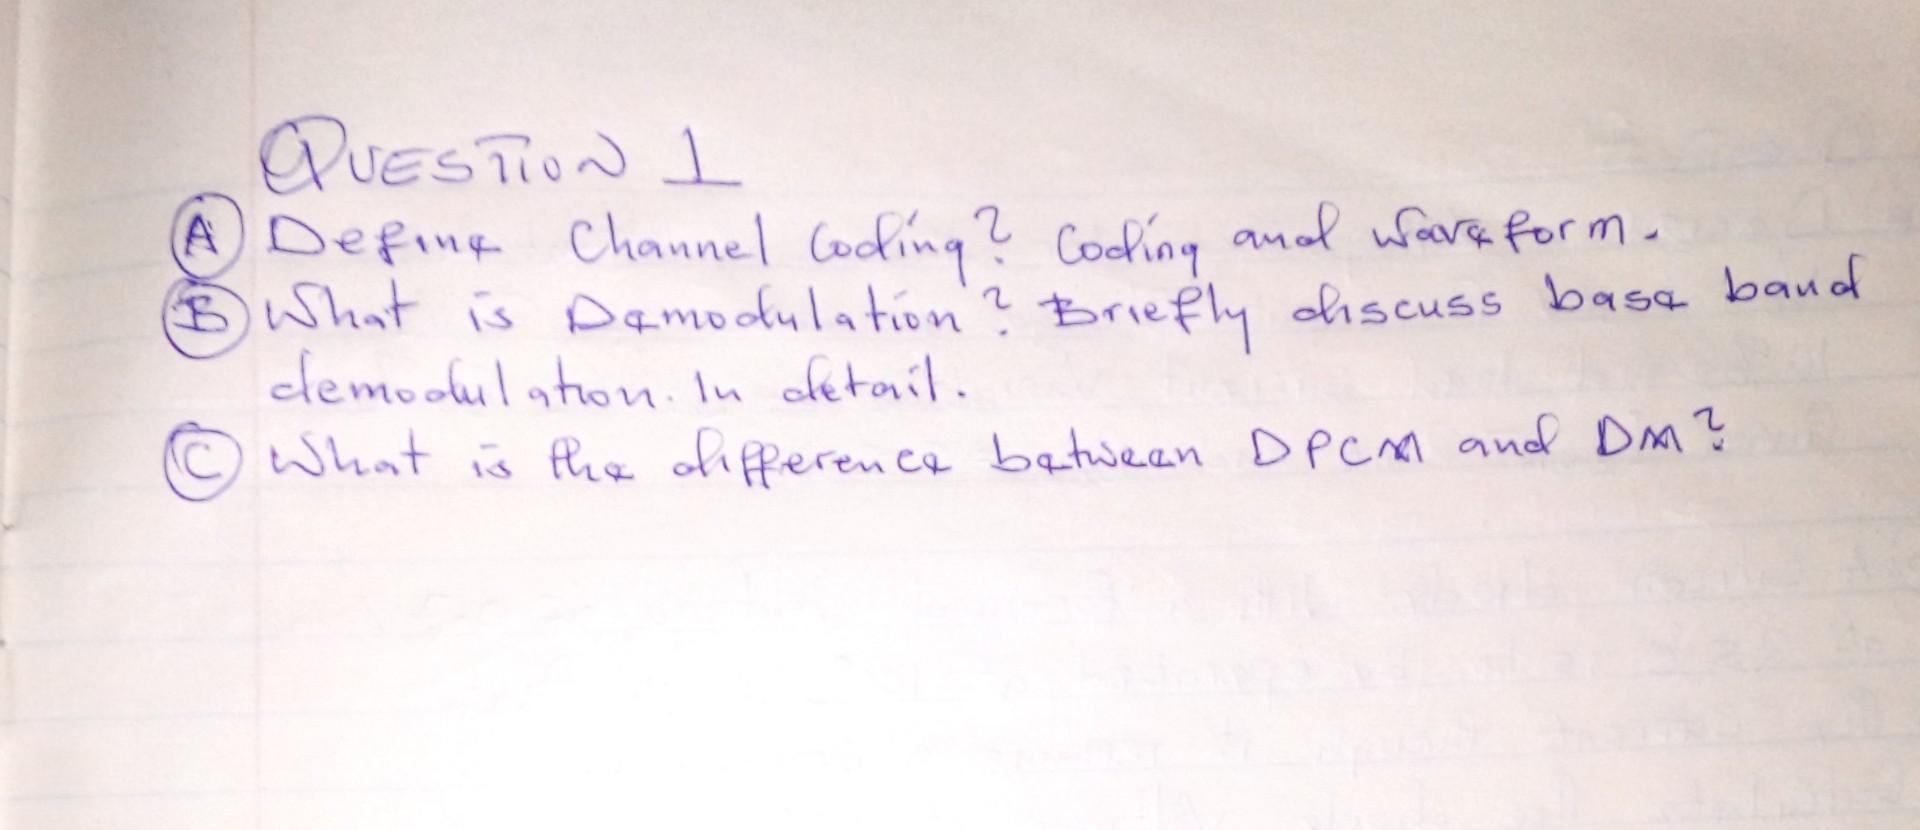 QUESTION 1
A Define Channel Coding? Coding and waveform.
B What is Demodulation? Briefly discuss base band
demodulation. In detail.
C What is the difference between DPCM and DM?